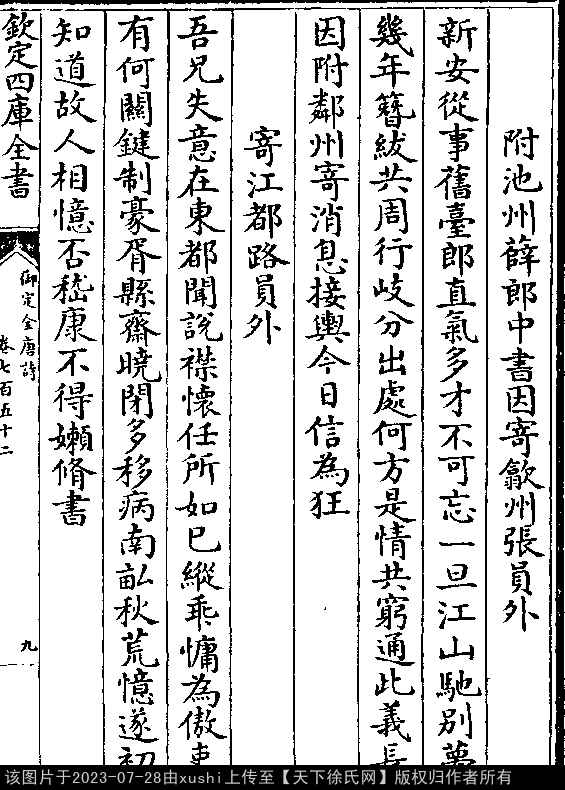 附池州薛郎中書因寄歙州張員外
新安從事舊臺郎直氣多才不可忘一旦江山馳别夢
幾年簪紱共周行岐分出處何方是情共窮通此義長
因附鄰州寄消息接輿今日信為狂
寄江都路員外
吾兄失意在東都聞說襟懷任所如已縱乖慵為傲吏
有何關鍵制豪胥縣齋曉閉多移病南畝秋荒憶遂初
知道故人相憶否嵇康不得嬾脩書
欽定四庫全書
御定全唐詩
卷七百五十二
九
该图片于2023-07-28由xushi上传至【天下徐氏网】版权归作者所有